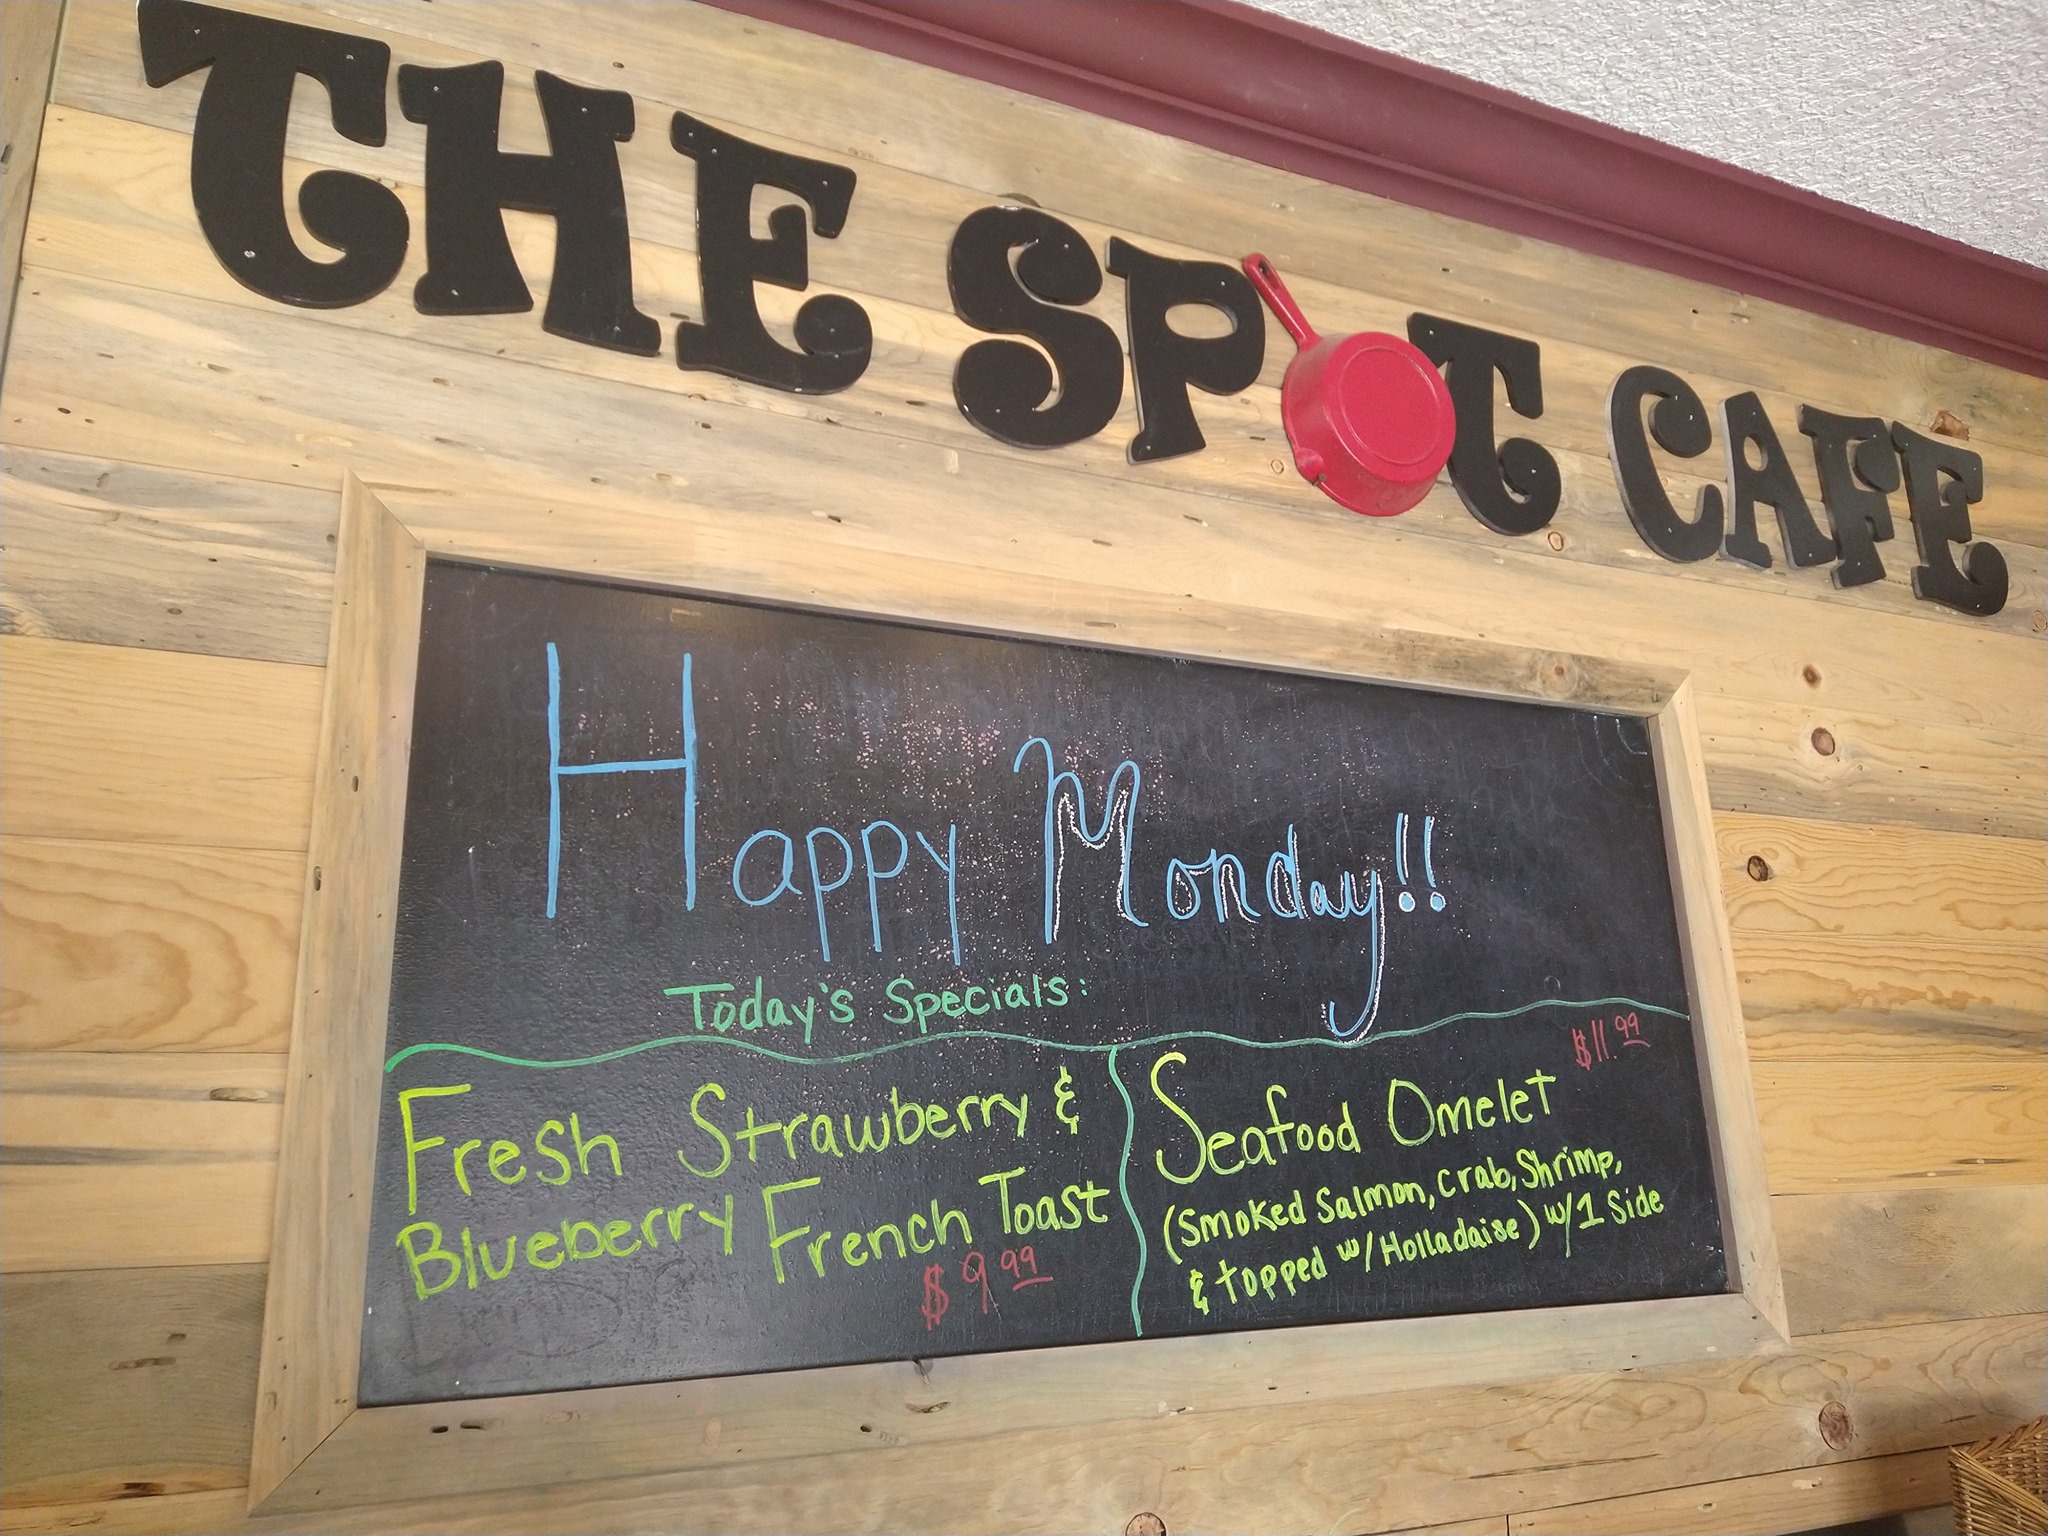 THE SPOT CAFE
Happy Monday!!
Today's Specials:
Fresh Strawberry &
Blueberry French Toast
$9.99
Seafood Omelet
$11.99
(Smoked Salmon, Crab, Shrimp,
& topped w/Holladaise) w/1 Side